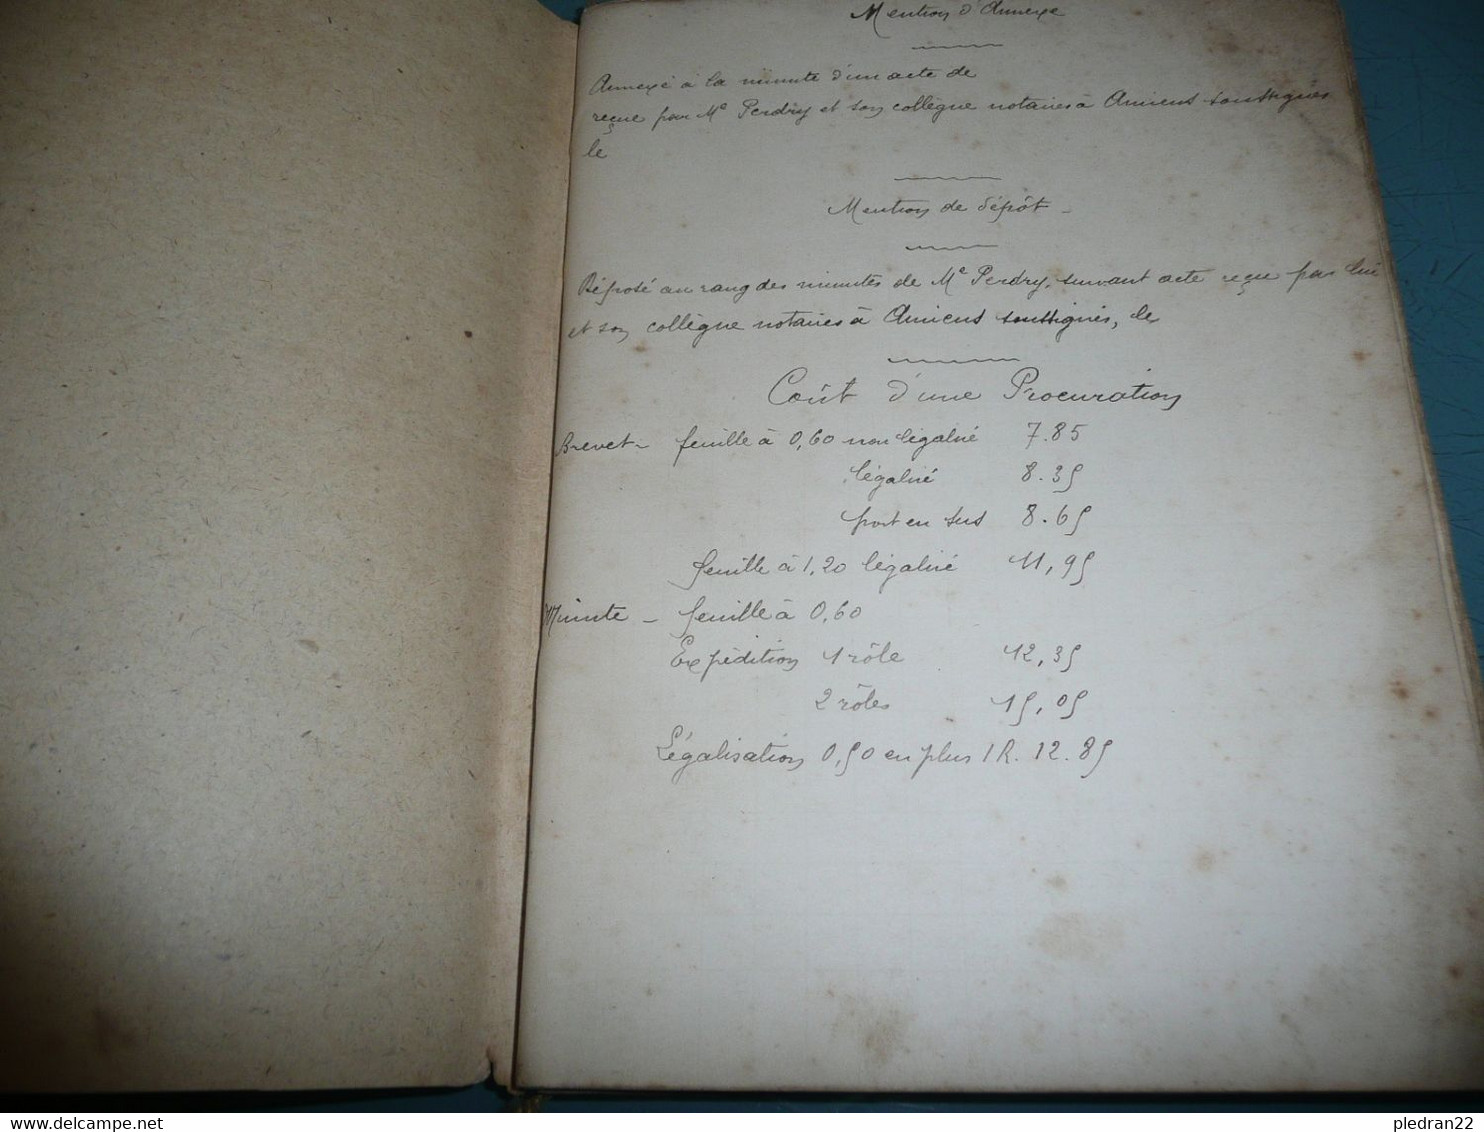 Mention d'Annexe
Annexé à la minute d'un acte de
reçue par Me Perdry et son collègue notaires à Amiens soussignés
le
Mention de dépôt -
Déposé au rang des minutes de Me Perdry, suivant acte reçu par lui
et son collègue notaires à Amiens soussignés, le
Coût d'une Procuration
Brevet - feuille à 0,60 non légalisé 7.85
légalisé 8.35
port en sus 8.65
feuille à 1,20 légalisé 11,95
Minute - feuille à 0,60
Expédition 1 rôle 12,35
2 rôles 15,05
Légalisation 0,50 en plus 1 R. 12.85
www.delcampe.net
pledran22